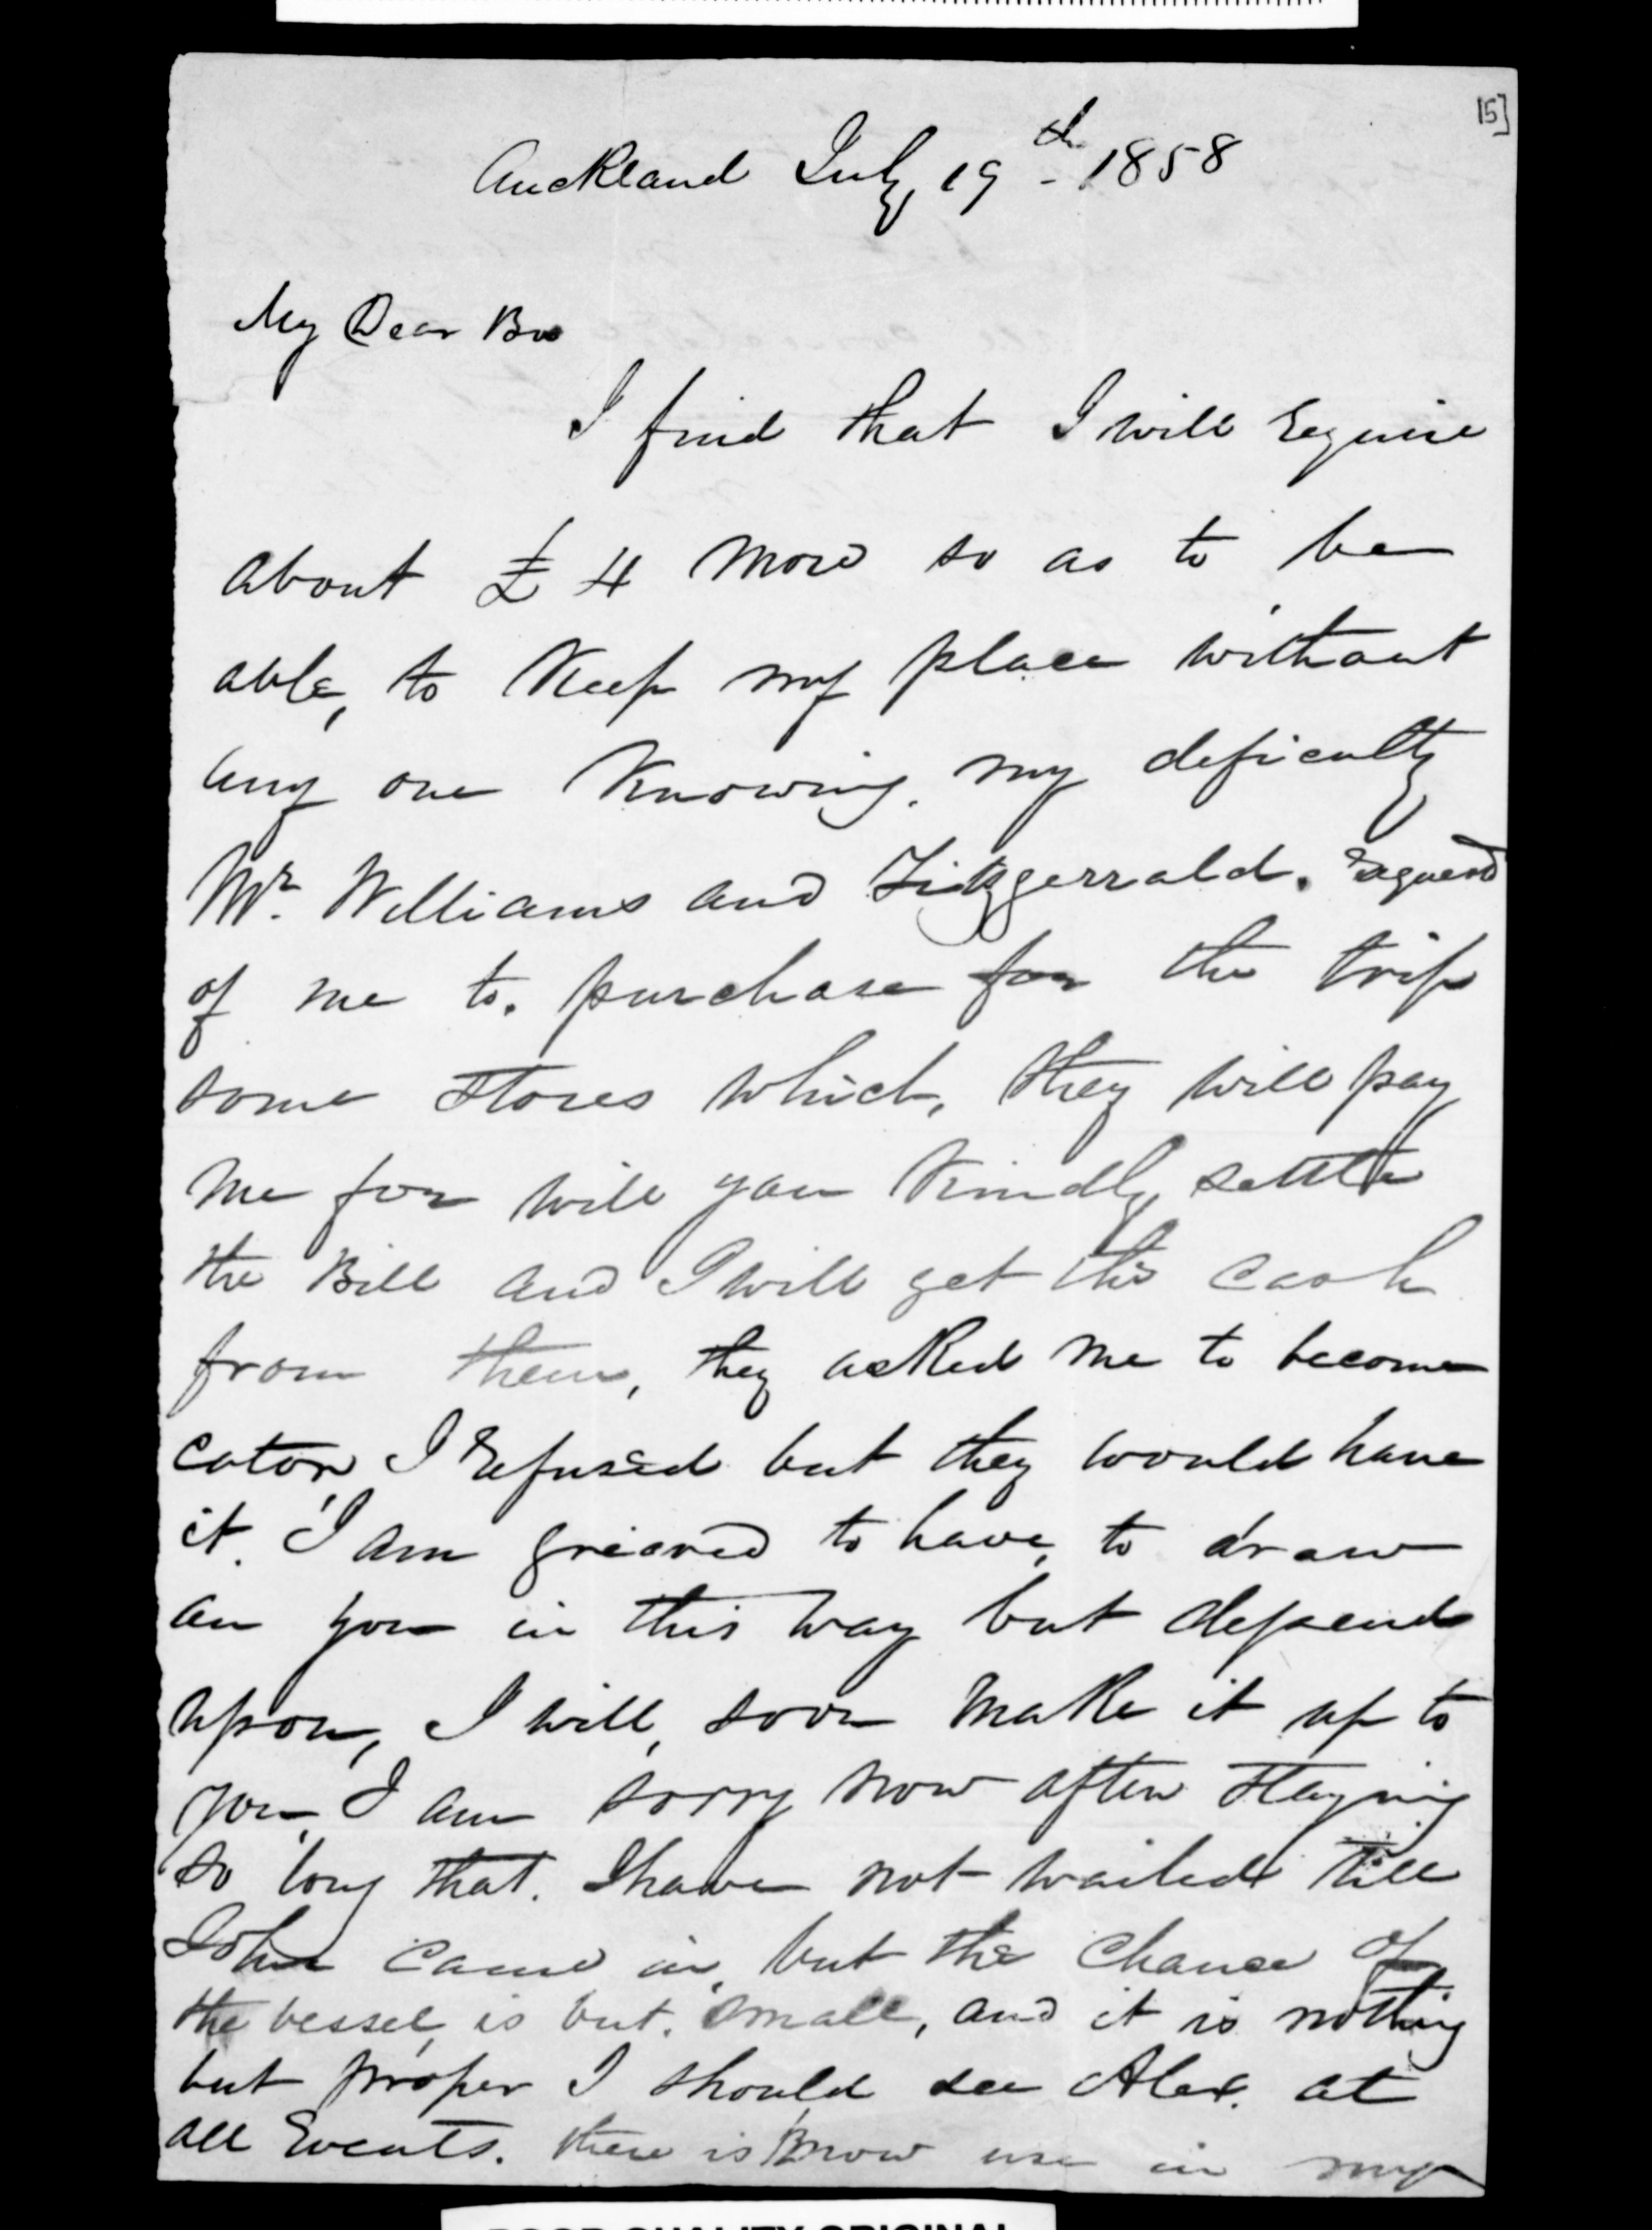 15]
Auckland July 19th - 1858
My Dear Bro
I find that I will require
about £ 4 more so as to be
able, to Keep my place without
any one Knowing. my deficulty
Mr. Williams and Fitzgerrald. request
of me to. purchase for the trip
some stores which, they will pay
me for will you Kindly settle
the Bill and I will get the cash
from them, they asked me to become
cator, I refused but they would have
it. I am grieved to have, to draw
an you in this way but depend
upon, I will, soon make it up to
you, I am sorry now after staying
so long that. I have not waited till
John came in, but the chance of
the vessel, is but. small, and it is nothing
but proper I should see Alex. at
all Events. there is Know use in my